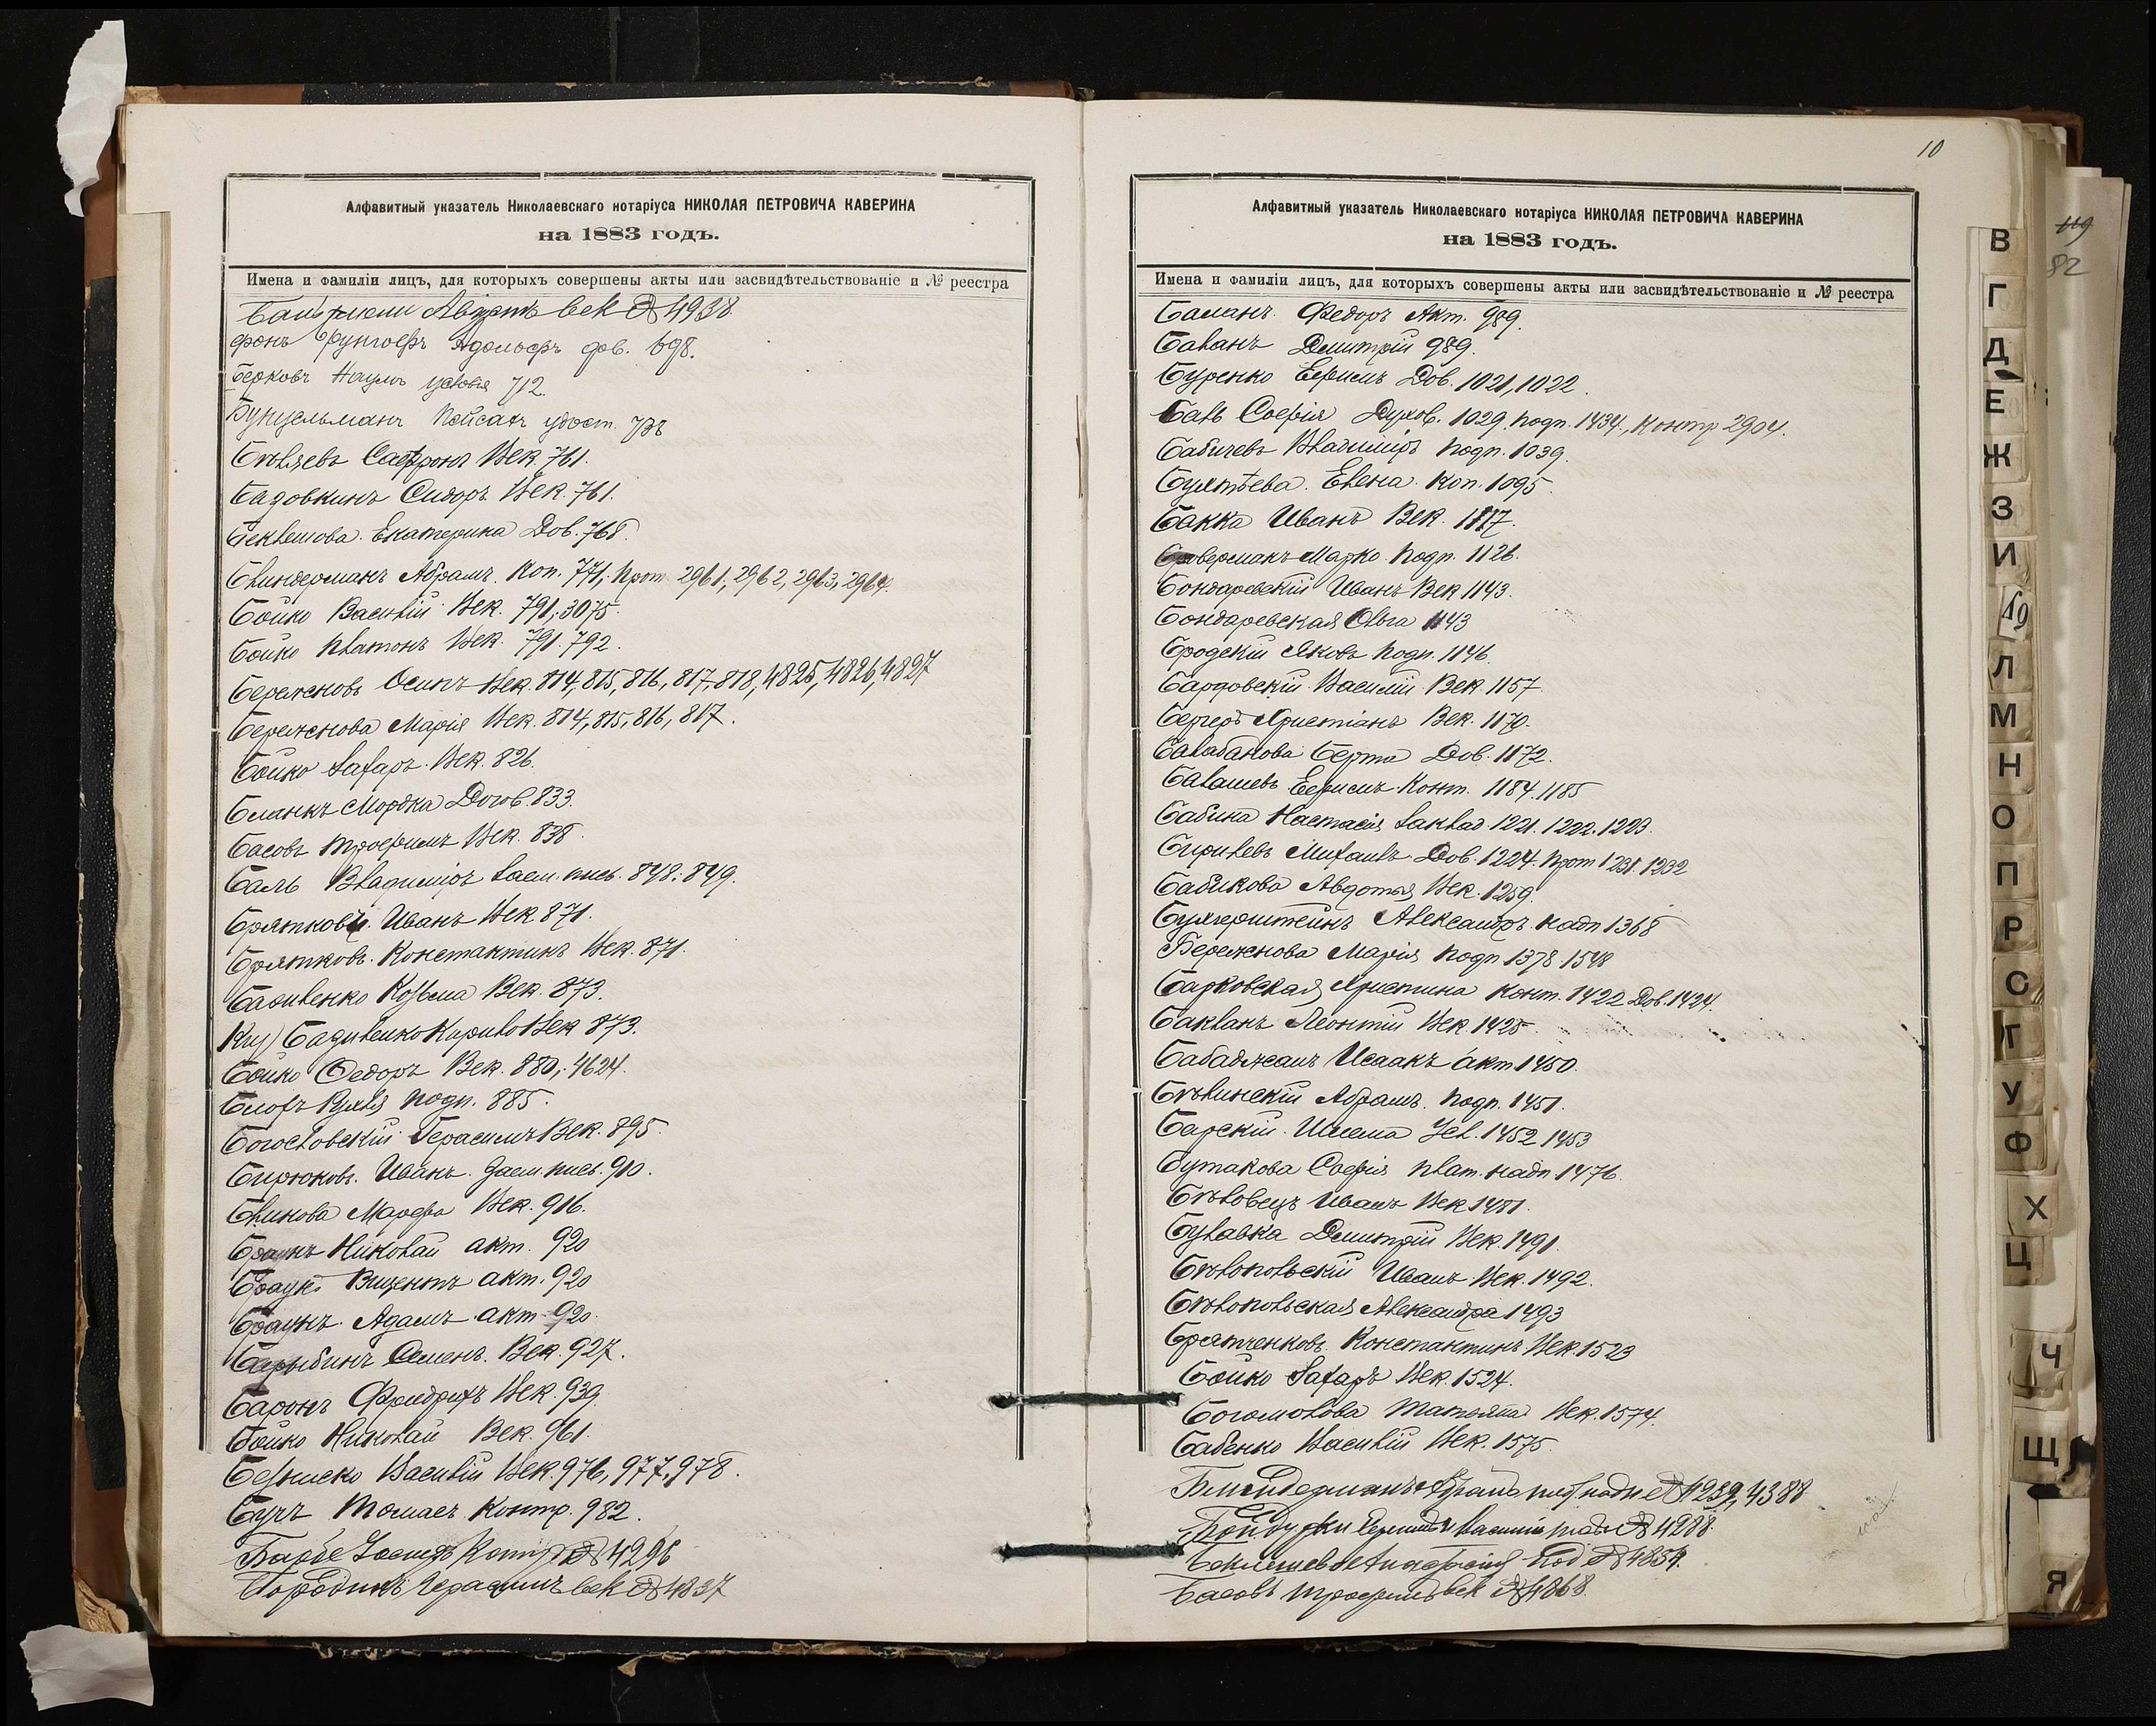 Алфавитный указатель Николаевскаго нотаріуса НИКОЛАЯ ПЕТРОВИЧА КАВЕРИНА
на 1883 годъ.
Имена и фамиліи лицъ, для которыхъ совершены акты или засвидѣтельствованіе и № реестра
Августъ век № 4938
фонъ Адольфъ дов. 698.
Берковъ Наумъ условія 712.
Бунцельманъ Пейсахъ удост.
Бѣляевъ Сафронъ Век. 761.
Бадовкинъ Сидоръ. Век. 761.
Беклешова. Екатерина Дов. 768.
Блиндерманъ Абрамъ. Коп. 771; прот 2961, 2962, 2963, 2964.
Бойко Василій Век. 791; 3075.
Бойко Платонъ Век. 791. 792.
Бережновъ Осипъ Век. 814, 815, 816, 817, 818, 4825, 4826, 4827
Бережнова Марія Век. 814, 815, 816, 817.
Бойко Захаръ. Век. 826.
Бланкъ Мордка Догов. 833.
Басовъ Трофимъ Век. 838.
Баль Владиміръ Заем. пись. 848. 849.
Братковъ. Иванъ Век. 871.
Братковъ. Константинъ Век. 871.
Козьма Век. 873.
Кирило Век 873.
Бойко Федоръ Век. 880; 4624.
Блохъ Рухля подп. 885.
Богословскій Герасимъ Век. 895.
Бирюковъ. Иванъ. Заем. пись. 910.
Блинова Марфа Век. 916.
Браунъ Николай акт. 920
Браунъ Вицентъ акт. 920
Браунъ. Адамъ. акт 920.
Барыбинъ Семенъ. Век. 927.
Баронъ Фридрихъ Век. 939.
Бойко Николай Век. 961.
Василій Век. 976, 977, 978.
Бучъ Томасъ Контр. 982.
Барбе Іосифъ Контр № 4296
Бородинъ Герасимъ век № 4837
10
Алфавитный указатель Николаевскаго нотаріуса НИКОЛАЯ ПЕТРОВИЧА КАВЕРИНА
на 1883 годъ.
Имена и фамиліи лицъ, для которыхъ совершены акты или засвидѣтельствованіе и № реестра
Федоръ Акт. 989.
Баланъ Димитрій 989.
Буренко Ефимъ Дов. 1021, 1022.
Баль Софія Духов. 1029. подп. 1434., Контр 2904.
Бабичевъ Владиміръ подп. 1039.
Бухтѣева. Елена. Коп. 1095
Бакка Иванъ Век.
Броверманъ Марко подп. 1126.
Бондаревскій Иванъ Век 1143.
Бондаревская Ольга 1143
Бродскій Яковъ подп. 1146.
Бардовскій Василій Век. 1157.
Бергеръ Христіанъ Век. 1170.
Балабанова Берта Дов. 1172.
Балашевъ Ефимъ. Конт. 1184. 1185
Бабина Настасія Заклад. 1221. 1222. 1223.
Бирилевъ Михаилъ Дов. 1224. прот 1231. 1232
Бабикова Авдотья Век. 1259.
Бухгерштейнъ Александръ. надп 1368
Бережнова Марія подп 1378. 1548
Барковская Христина Конт. 1422 Дов. 1424.
Бакланъ Леонтій Век. 1425.
Бабаджанъ Исаакъ акт 1450.
Бѣлинскій Абрамъ. подп. 1451.
Барскій. Шлема Усл. 1452 1453
Бутакова Софія плат. надп 1476.
Бѣловецъ Иванъ Век 1481.
Булавка Димитрій Век. 1491.
Бѣлопольскій Иванъ Век. 1492.
Бѣлопольская Александра 1493
Братченковъ. Константинъ Век. 1523
Бойко Захаръ Век. 1524.
Богомолова Татьяна Век. 1574.
Бабенко Василій Век. 1575.
Блиндерманъ Абрамъ надп № 4239, 4388
Василій № 4288.
№ 4854.
Басовъ Трофимъ век № 4868.
119
82
В
Г
Д
Е
Ж
З
И
Л
М
Н
О
П
Р
С
Т
У
Ф
Х
Ц
Ч
Щ
Я